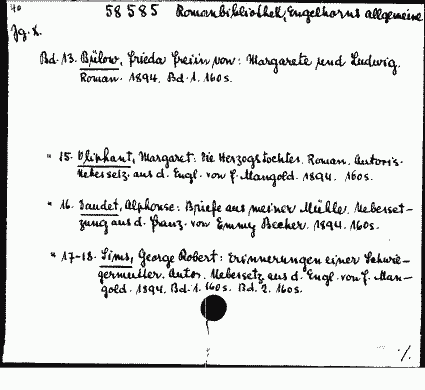 40 58585 Romanbibliothek, Engelhorns allgemeine
Jg. X.
Bd. 13. Bülow, Frieda Freiin von: Margarete und Ludwig.
Roman. 1894. Bd. 1. 160 S.
" 15. Oliphant, Margaret: Die Herzogstochter. Roman. Autoris.
Uebersetz. aus d. Engl. von F. Mangold. 1894. 160 S.
" 16. Daudet, Alphonse: Briefe aus meiner Mühle. Ueberset-
zung aus d. Franz. von Emmy Becher. 1894. 160 S.
" 17-18. Sims, George Robert: Erinnerungen einer Schwie-
germutter. Autor. Uebersetz. aus d. Engl. von F. Man-
gold. 1894. Bd. 1. 160 S. Bd. 2. 160 S.
./.